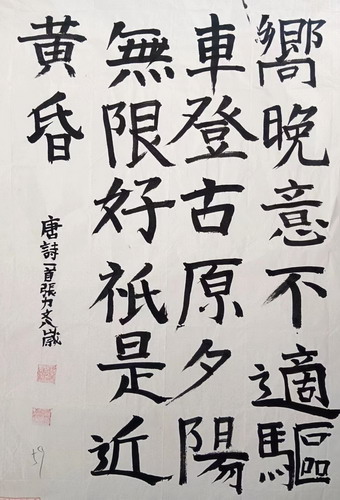 嚮晚意不適驅
車登古原夕陽
無限好祇是近
黃昏
唐詩一首張力文八歲
59